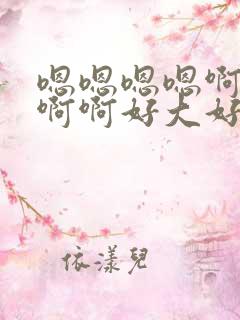 嗯嗯嗯嗯啊
啊啊好大好
依漾兒